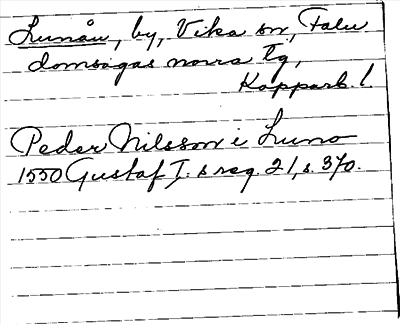 Lunåu, by, Vika sn, Falu
domsagas norra tg,
Kopparb. l.
Peder Nilsson i Luno
1550 Gustaf I:s reg. 21, s. 370.